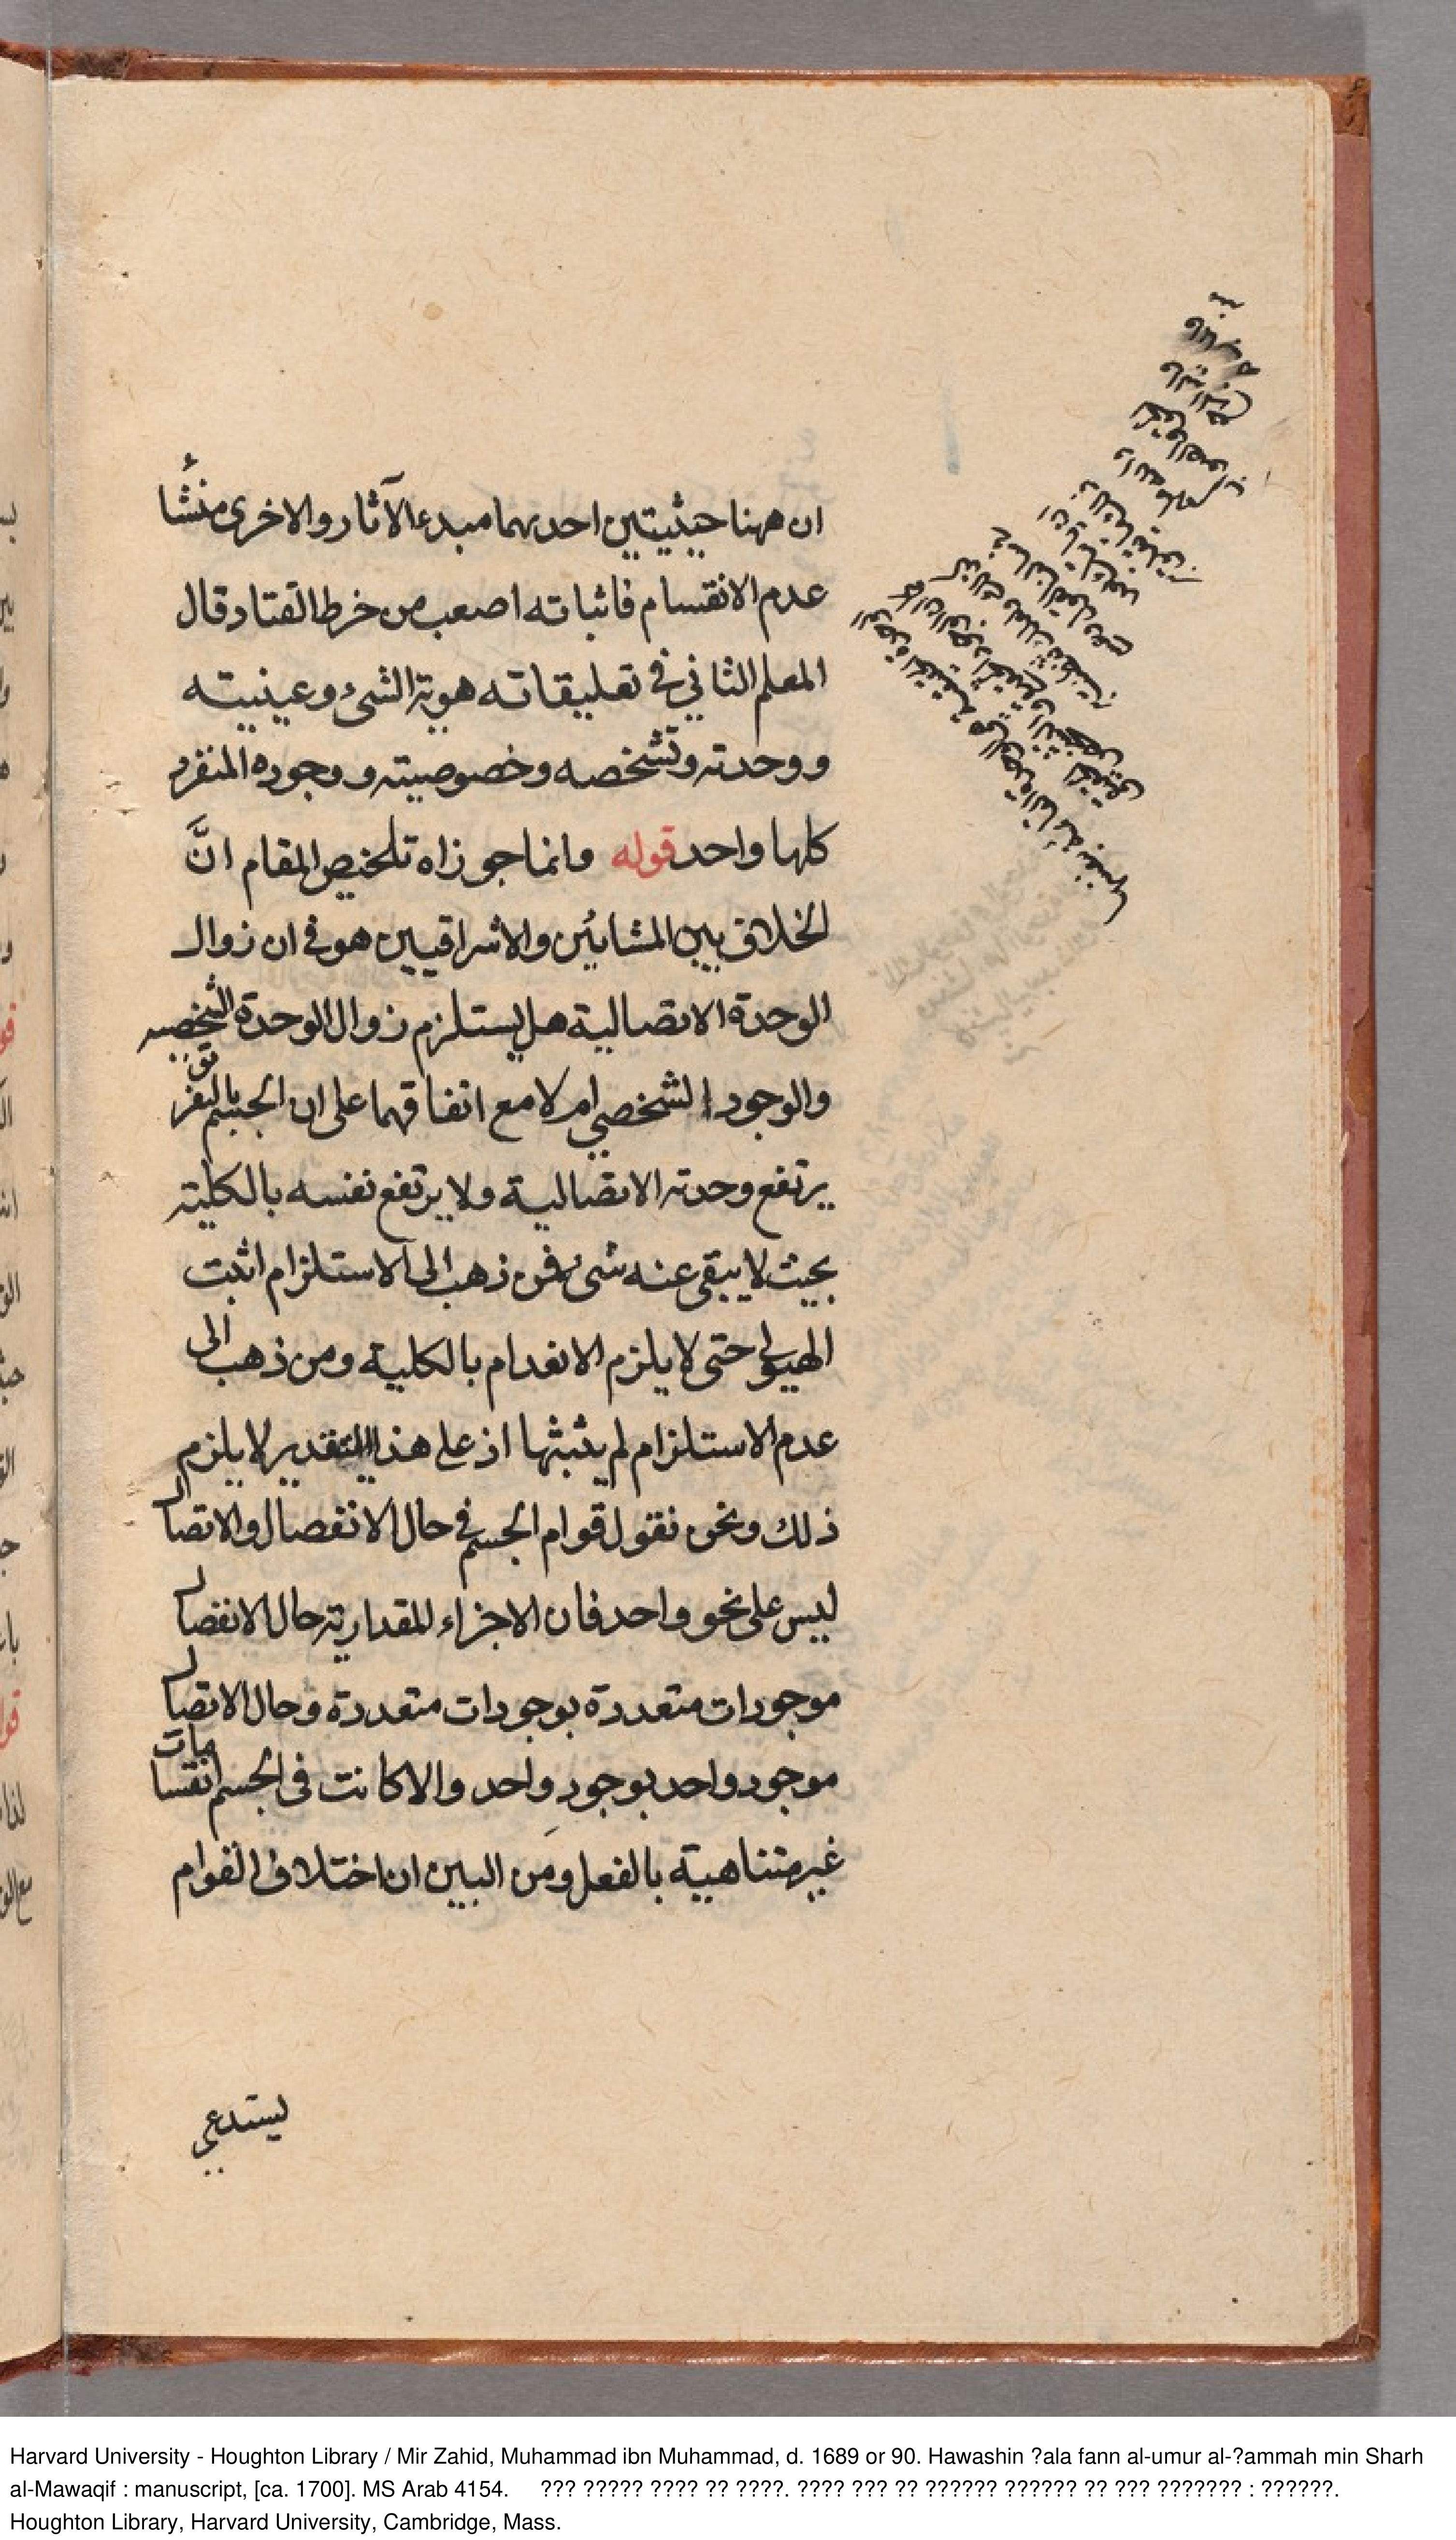 ان ههنا حيثيتين احديهما مبدء الآثار والاخرى منشأ
عدم الانقسام فاثباته اصعب من خرط القتاد قال
المعلم الثاني في تعليقاته هوية الشئ وعينيته
ووحدته وتشخصه وخصوصيته ووجوده المنفرد
كلها واحد قوله وانما جوزاه تلخيص المقام انَّ
الخلاف بين المشائين والاشراقيين هو في ان زوال
الوحدة الاتصالية هل يستلزم زوال الوحدة الشخصيه
والوجود الشخصي ام لا مع اتفاقهما على ان الجسم بالتفرق
يرتفع وحدته الاتصالية ولا يرتفع نفسه بالكلية
بحيث لا يبقى عنه شئ فمن ذهب الى الاستلزام اثبت
الهيولى حتى لا يلزم الانعدام بالكلية ومن ذهب الى
عدم الاستلزام لم يثبتها اذ على هذا التقدير لا يلزم
ذلك ونحن نقول قوام الجسم في حال الانفصال والاتصال
ليس على نحو واحد فان الاجزاء المقدارية حال الانفصال
موجودات متعددة بوجودات متعددة وحال الاتصال
موجود واحد بوجود واحد والا كانت فى الجسم انقسامات
غير متناهية بالفعل ومن البين ان اختلاف القوام
يستدعي
Harvard University - Houghton Library / Mir Zahid, Muhammad ibn Muhammad, d. 1689 or 90. Hawashin ?ala fann al-umur al-?ammah min Sharh
al-Mawaqif : manuscript, [ca. 1700]. MS Arab 4154. ??? ????? ???? ?? ????. ???? ??? ?? ?????? ?????? ?? ??? ??????? : ??????.
Houghton Library, Harvard University, Cambridge, Mass.